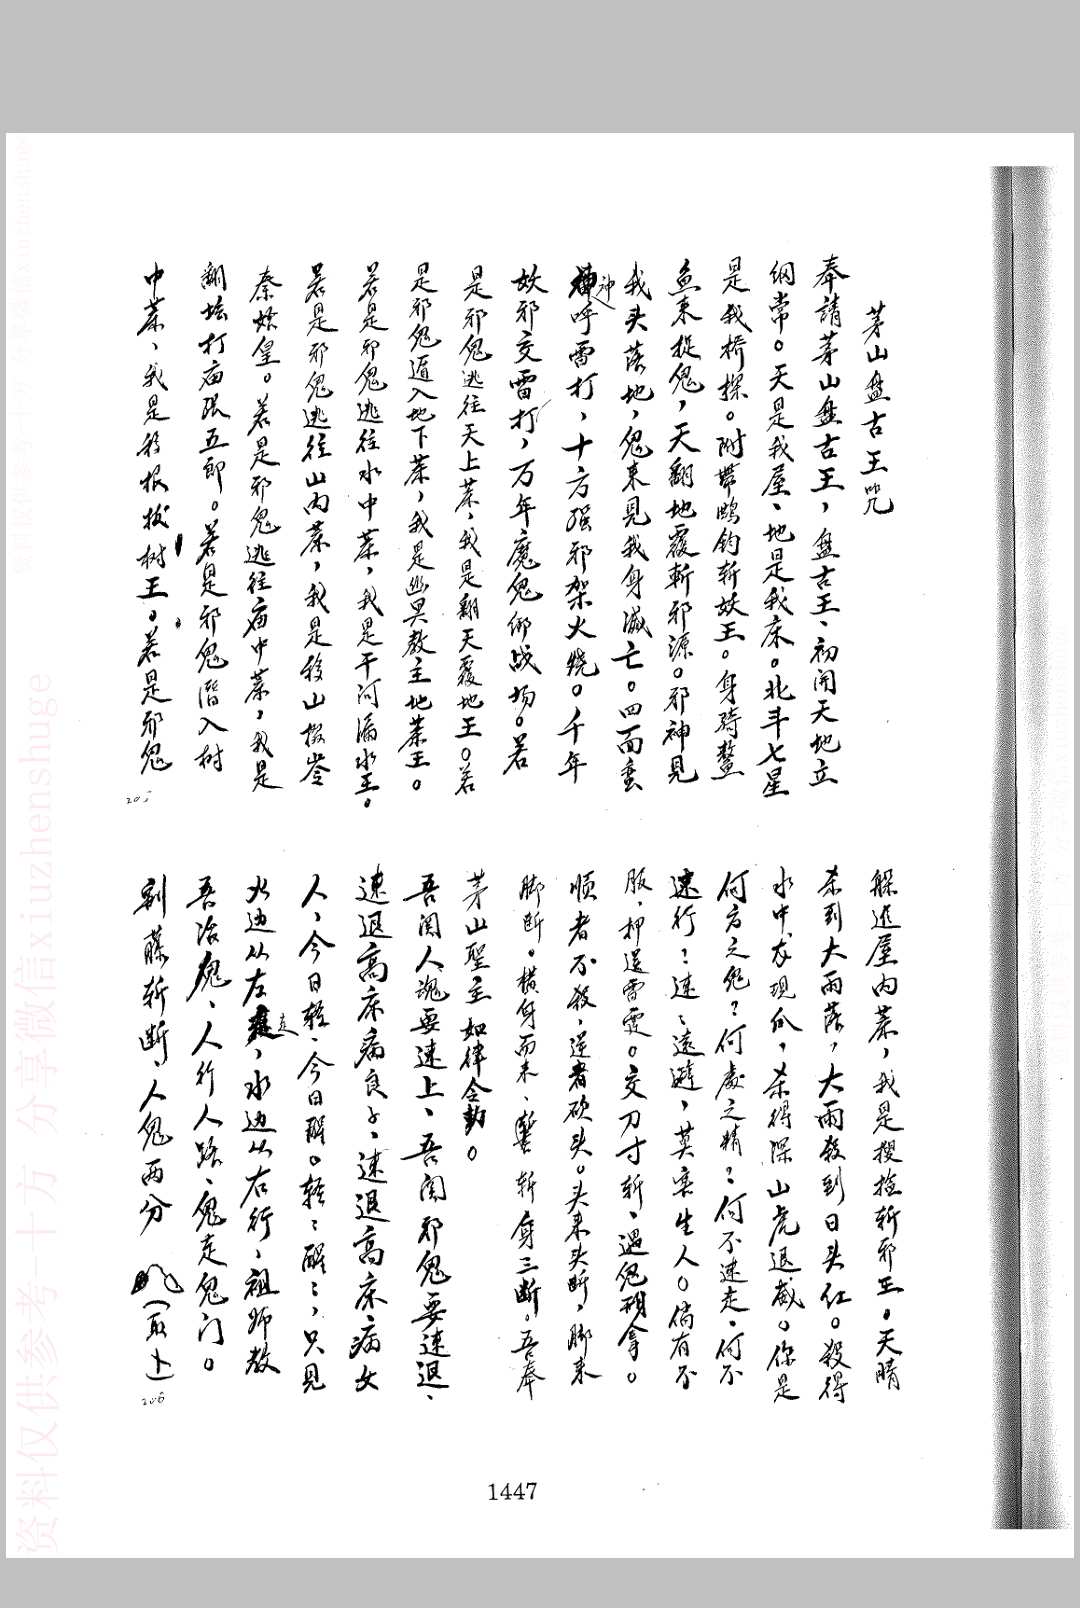 茅山盘古王咒
奉請茅山盘古王，盘古王、初開天地立
纲常。天是我屋、地是我床。北斗七星
是我桥樑。附帶鸱钩斩妖王。身骑鳌
魚来捉鬼，天翻地覆斬邪源。邪神見
我头落地，鬼来見我身滅亡。四面蛮
神呼雷打，十方强邪架火烧。千年
妖邪交雷打，万年魔鬼御战场。若
是邪鬼逃往天上茶、我是翻天覆地王。若
是邪鬼遁入地下茶，我是幽冥教主地茶王。
若是邪鬼逃往水中茶，我是干河漏水王。
若是邪鬼逃往山内茶，我是移山拨岺
秦始皇。若是邪鬼逃往庙中茶，我是
翻坛打庙张五郎。若是邪鬼潛入树
中茶，我是移根拔树王。若是邪鬼
205
躲進屋内茶，我是搜捡斩邪王。天晴
杀到大雨落，大雨殺到日头红。殺得
水中龙现爪，杀得深山虎退威。你是
何方之鬼？何處之精？何不速走、何不
速行？速速遠避，莫害生人。倘有不
服、押送雷霆。交刀寸斩、遇鬼擒拿。
顺者不殺，逆者砍头。头来头断，脚来
脚断。横身而来、斬身三断。吾奉
茅山聖主如律令勅。
吾関人魂要速上、吾関邪鬼要速退、
速退高床病良子、速退高床病女
人，今日轻、今日醒。轻轻醒醒，只見
火边从左走，水边从右行，祖师教
吾治鬼、人行人路、鬼走鬼门。
割藤斩断，人鬼两分
206
1447
资料仅供参考 十方 分享微信xiuzhenshuge